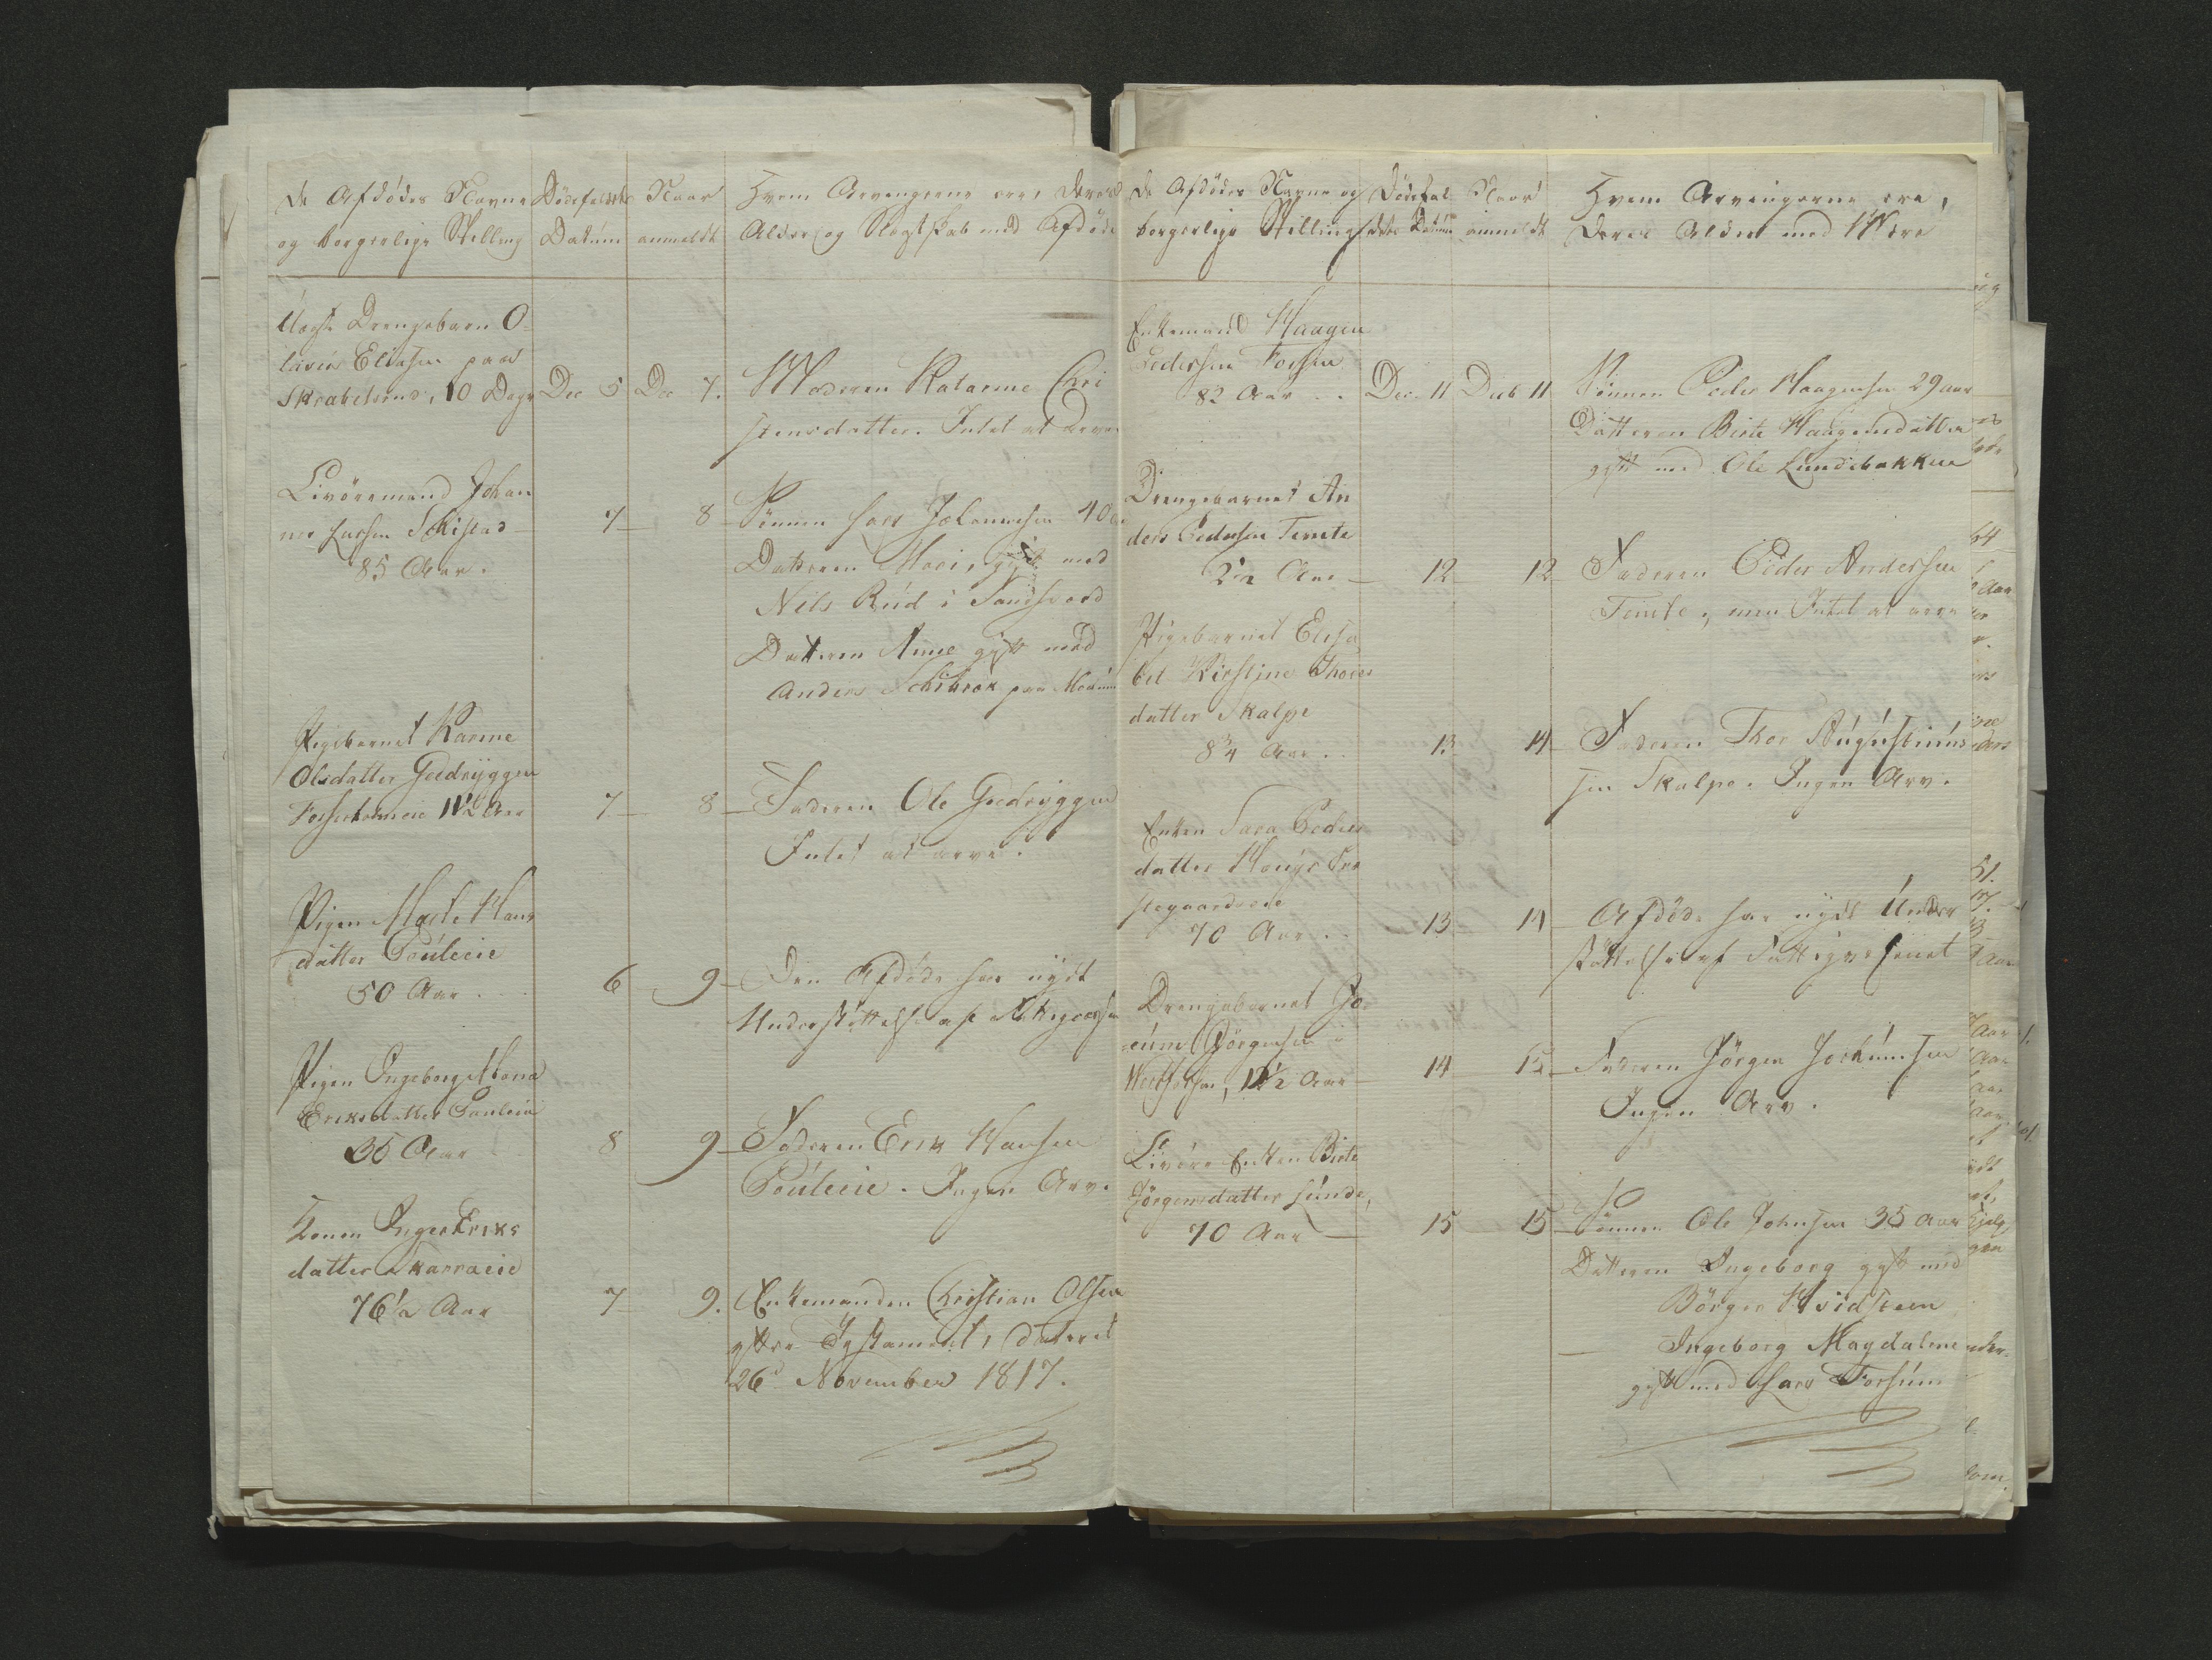 De Afdødes Navne
og borgerlige Stilling
Dødsfaldets
Datúm
Naar
anmeldt
Hvem Arvingerne ere, Deres
Alder og Slægtskab med Afdøde
Uægte Drengebarn O-
laves Eliasen paa
10 Dage
Dec 5
Dec 7.
Moderen Katarine Chri
stensdatter. Intet at arve
Livöremand Johan
nes Larsen Schistad
85 Aar.
7
8
Sönnen Lars Johannesen 40
Datteren Mari, gift med
Nils Rúd i Sandsverd
Datteren Anne gift med
Anders Schibrok paa Modúm
Pigebarnet Karine
Olsdatter Gædryggen
11½ Aar
7
8
Faderen Ole Gædryggen
Intet at arve.
Pigen Marte Hans
datter Poúleeie
50 Aar.
6
9
Den Afdøde har nydt
Understøttelse af
Pigen Ingeborg Maria
Eriksdatter Pouleeie
35 Aar
8
9
Faderen Erik Hansen
Poúleeie. Ingen Arv.
Konen Inger Eriks
datter Skarraeie
76½ Aar
7
9.
Enkemanden Christian Olsen
efter Testament, dateret
26d November 1817.
De Afdødes Navne og
borgerlige Stilling
Dødsfal
dets Datúm
Naar
anmeldt
Hvem Arvingerne ere,
Deres Alder med Mere
Enkemand Haagen
Pedersen Fossen
82 Aar
Dec. 11
Decb 11
Sönnen Peder Haagensen 29 aar
Datteren Birte Haagensdatter
gift med Ole Lundebakken
Drengebarnet An
ders Pedersen Temte
2½ Aar
12
12
Faderen Peder Andersen
Temte, men Intet at arve
Pigebarnet Elisa
bet Kirstine Thores
datter Skalpe
8¾ Aar.
13
14
Faderen Thor Aúgústinús
sen Skalpe. Ingen Arv.
Enken Sara Peders
datter Pre
stegaardseie
70 Aar.
13
14
Afdøde har nydt Únder
støttelse af Fattigvesenet
Drengebarnet Jo-
cúm Jörgensen
12½ Aar
14
15
Faderen Jörgen Jockúmsen
Ingen Arv.
Livöre Enken Birte
Jörgensdatter Lúnde,
70 Aar
15
15
Sönnen Ole Johnsen 35 Aar
Datteren Ingeborg gift med
Börger Hvidsteen
— Ingeborg Magdalene
gift med Lars Forsúm